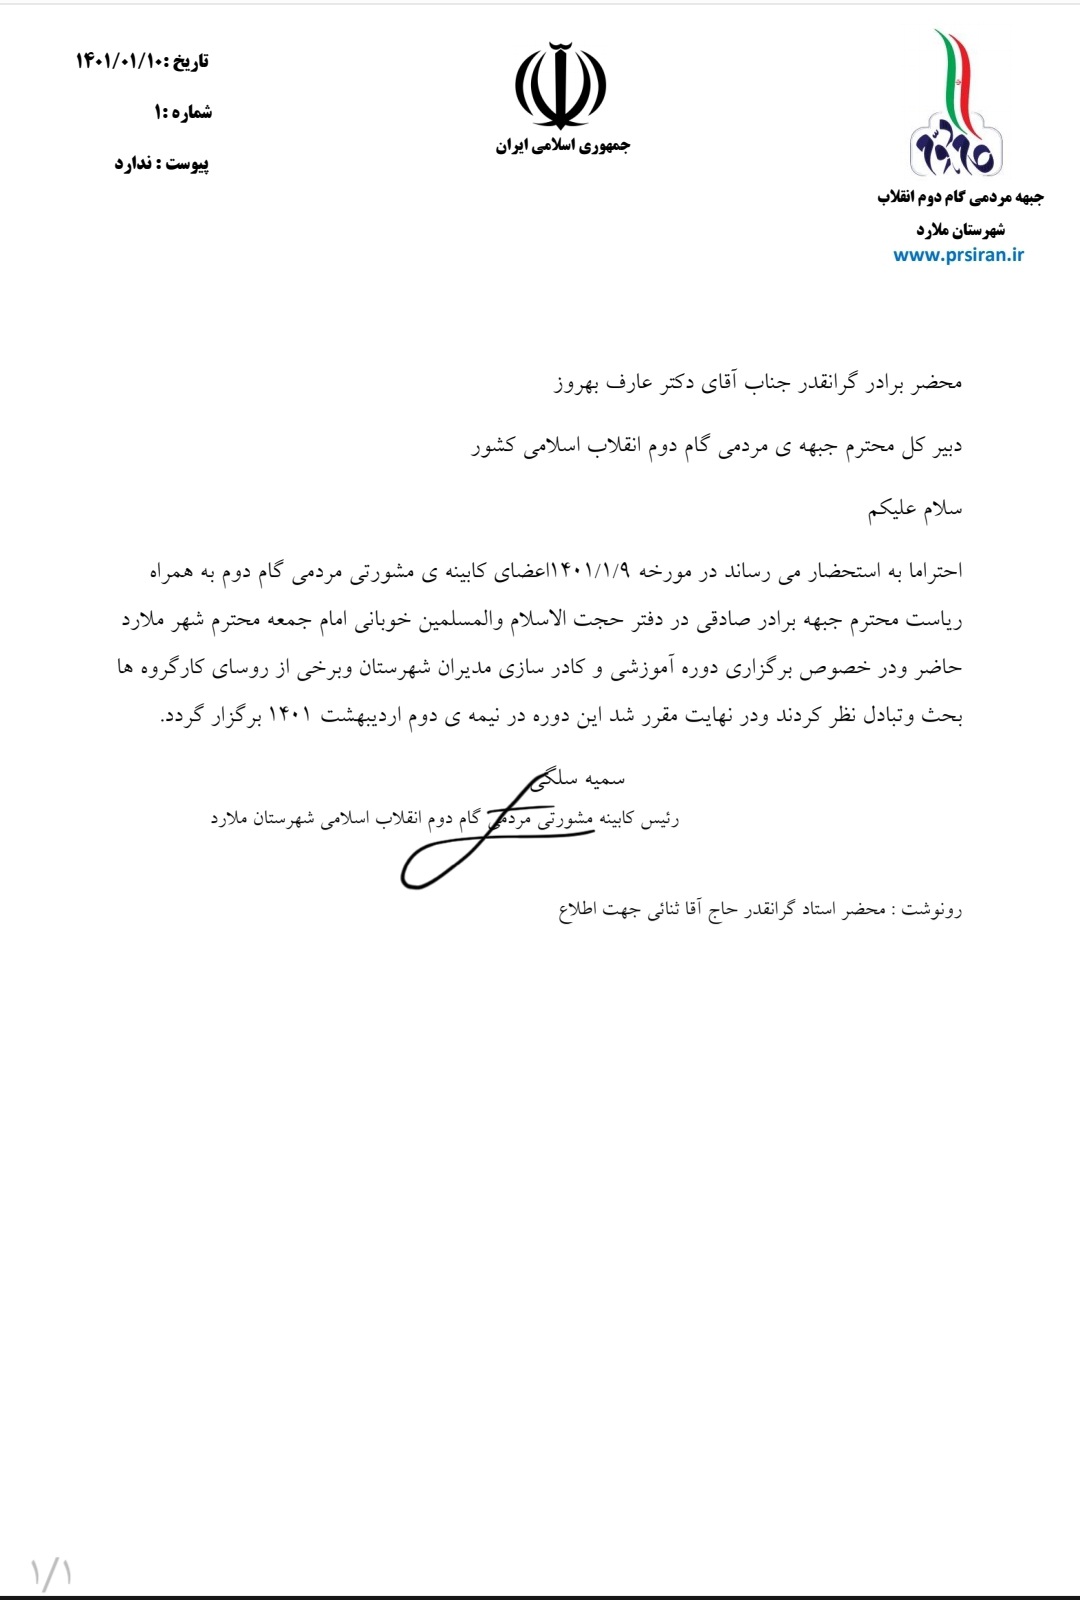 تاریخ :۱۴۰۱/۰۱/۱۰
شماره :۱
پیوست : ندارد
جمهوری اسلامی ایران
جبهه مردمی گام دوم انقلاب
شهرستان ملارد
www.prsiran.ir
محضر برادر گرانقدر جناب آقای دکتر عارف بهروز
دبیر کل محترم جبهه ی مردمی گام دوم انقلاب اسلامی کشور
سلام علیکم
احتراما به استحضار می رساند در مورخه ۱۴۰۱/۱/۹اعضای کابینه ی مشورتی مردمی گام دوم به همراه
ریاست محترم جبهه برادر صادقی در دفتر حجت الاسلام والمسلمین خوبانی امام جمعه محترم شهر ملارد
حاضر ودر خصوص برگزاری دوره آموزشی و کادر سازی مدیران شهرستان وبرخی از روسای کارگروه ها
بحث وتبادل نظر کردند ودر نهایت مقرر شد این دوره در نیمه ی دوم اردیبهشت ۱۴۰۱ برگزار گردد.
سمیه سلگی
رئیس کابینه مشورتی مردمی گام دوم انقلاب اسلامی شهرستان ملارد
رونوشت : محضر استاد گرانقدر حاج آقا ثنائی جهت اطلاع
۱/۱